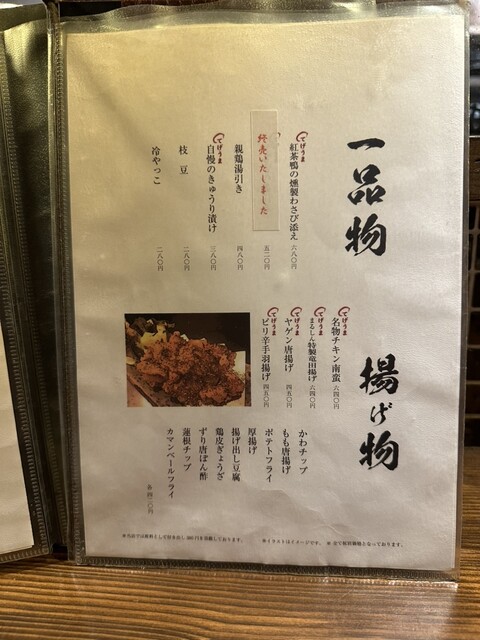 一品物
てげうま
紅茶鴨の燻製わさび添え 六八〇円
終売いたしました 五二〇円
親鶏湯引き 四八〇円
てげうま
自慢のきゅうり漬け 三八〇円
枝豆 二八〇円
冷やっこ 二八〇円
揚げ物
てげうま
名物チキン南蛮 六四〇円
てげうま
まるしん特製竜田揚げ 六四〇円
てげうま
ヤゲン唐揚げ 四五〇円
てげうま
ピリ辛手羽揚げ 四五〇円
かわチップ
もも唐揚げ
ポテトフライ
厚揚げ
揚げ出し豆腐
鶏皮ぎょうざ
ずり唐ぽん酢
蓮根チップ
カマンベールフライ
各四二〇円
※イラストはイメージです。 ※全て税別価格となっております。